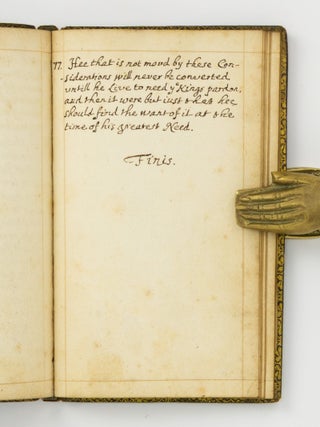 77. Hee that is not mov'd by these Con-
siderations will never be converted
untill he Live to need yᵉ Kings pardon,
and then it were but just that hee
should find the want of it at the
time of his greatest Need.
Finis.